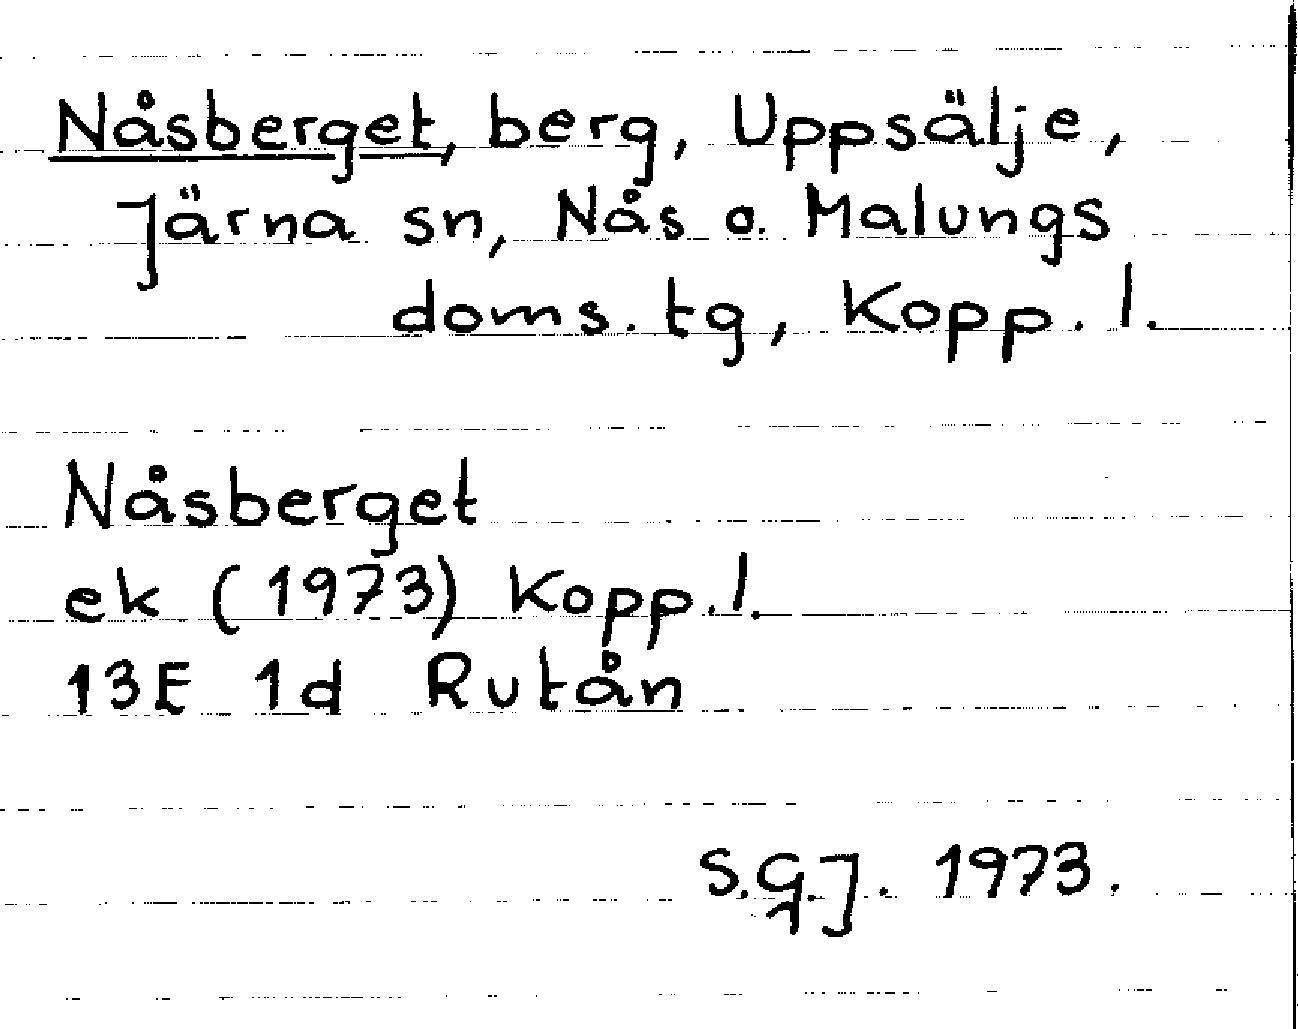 Nåsberget, berg, Uppsälje,
Järna sn, Nås o. Malungs
doms. tg, Kopp. l.
Nåsberget
ek (1973) Kopp. l.
13E 1d Rutån
S.G.J. 1973.